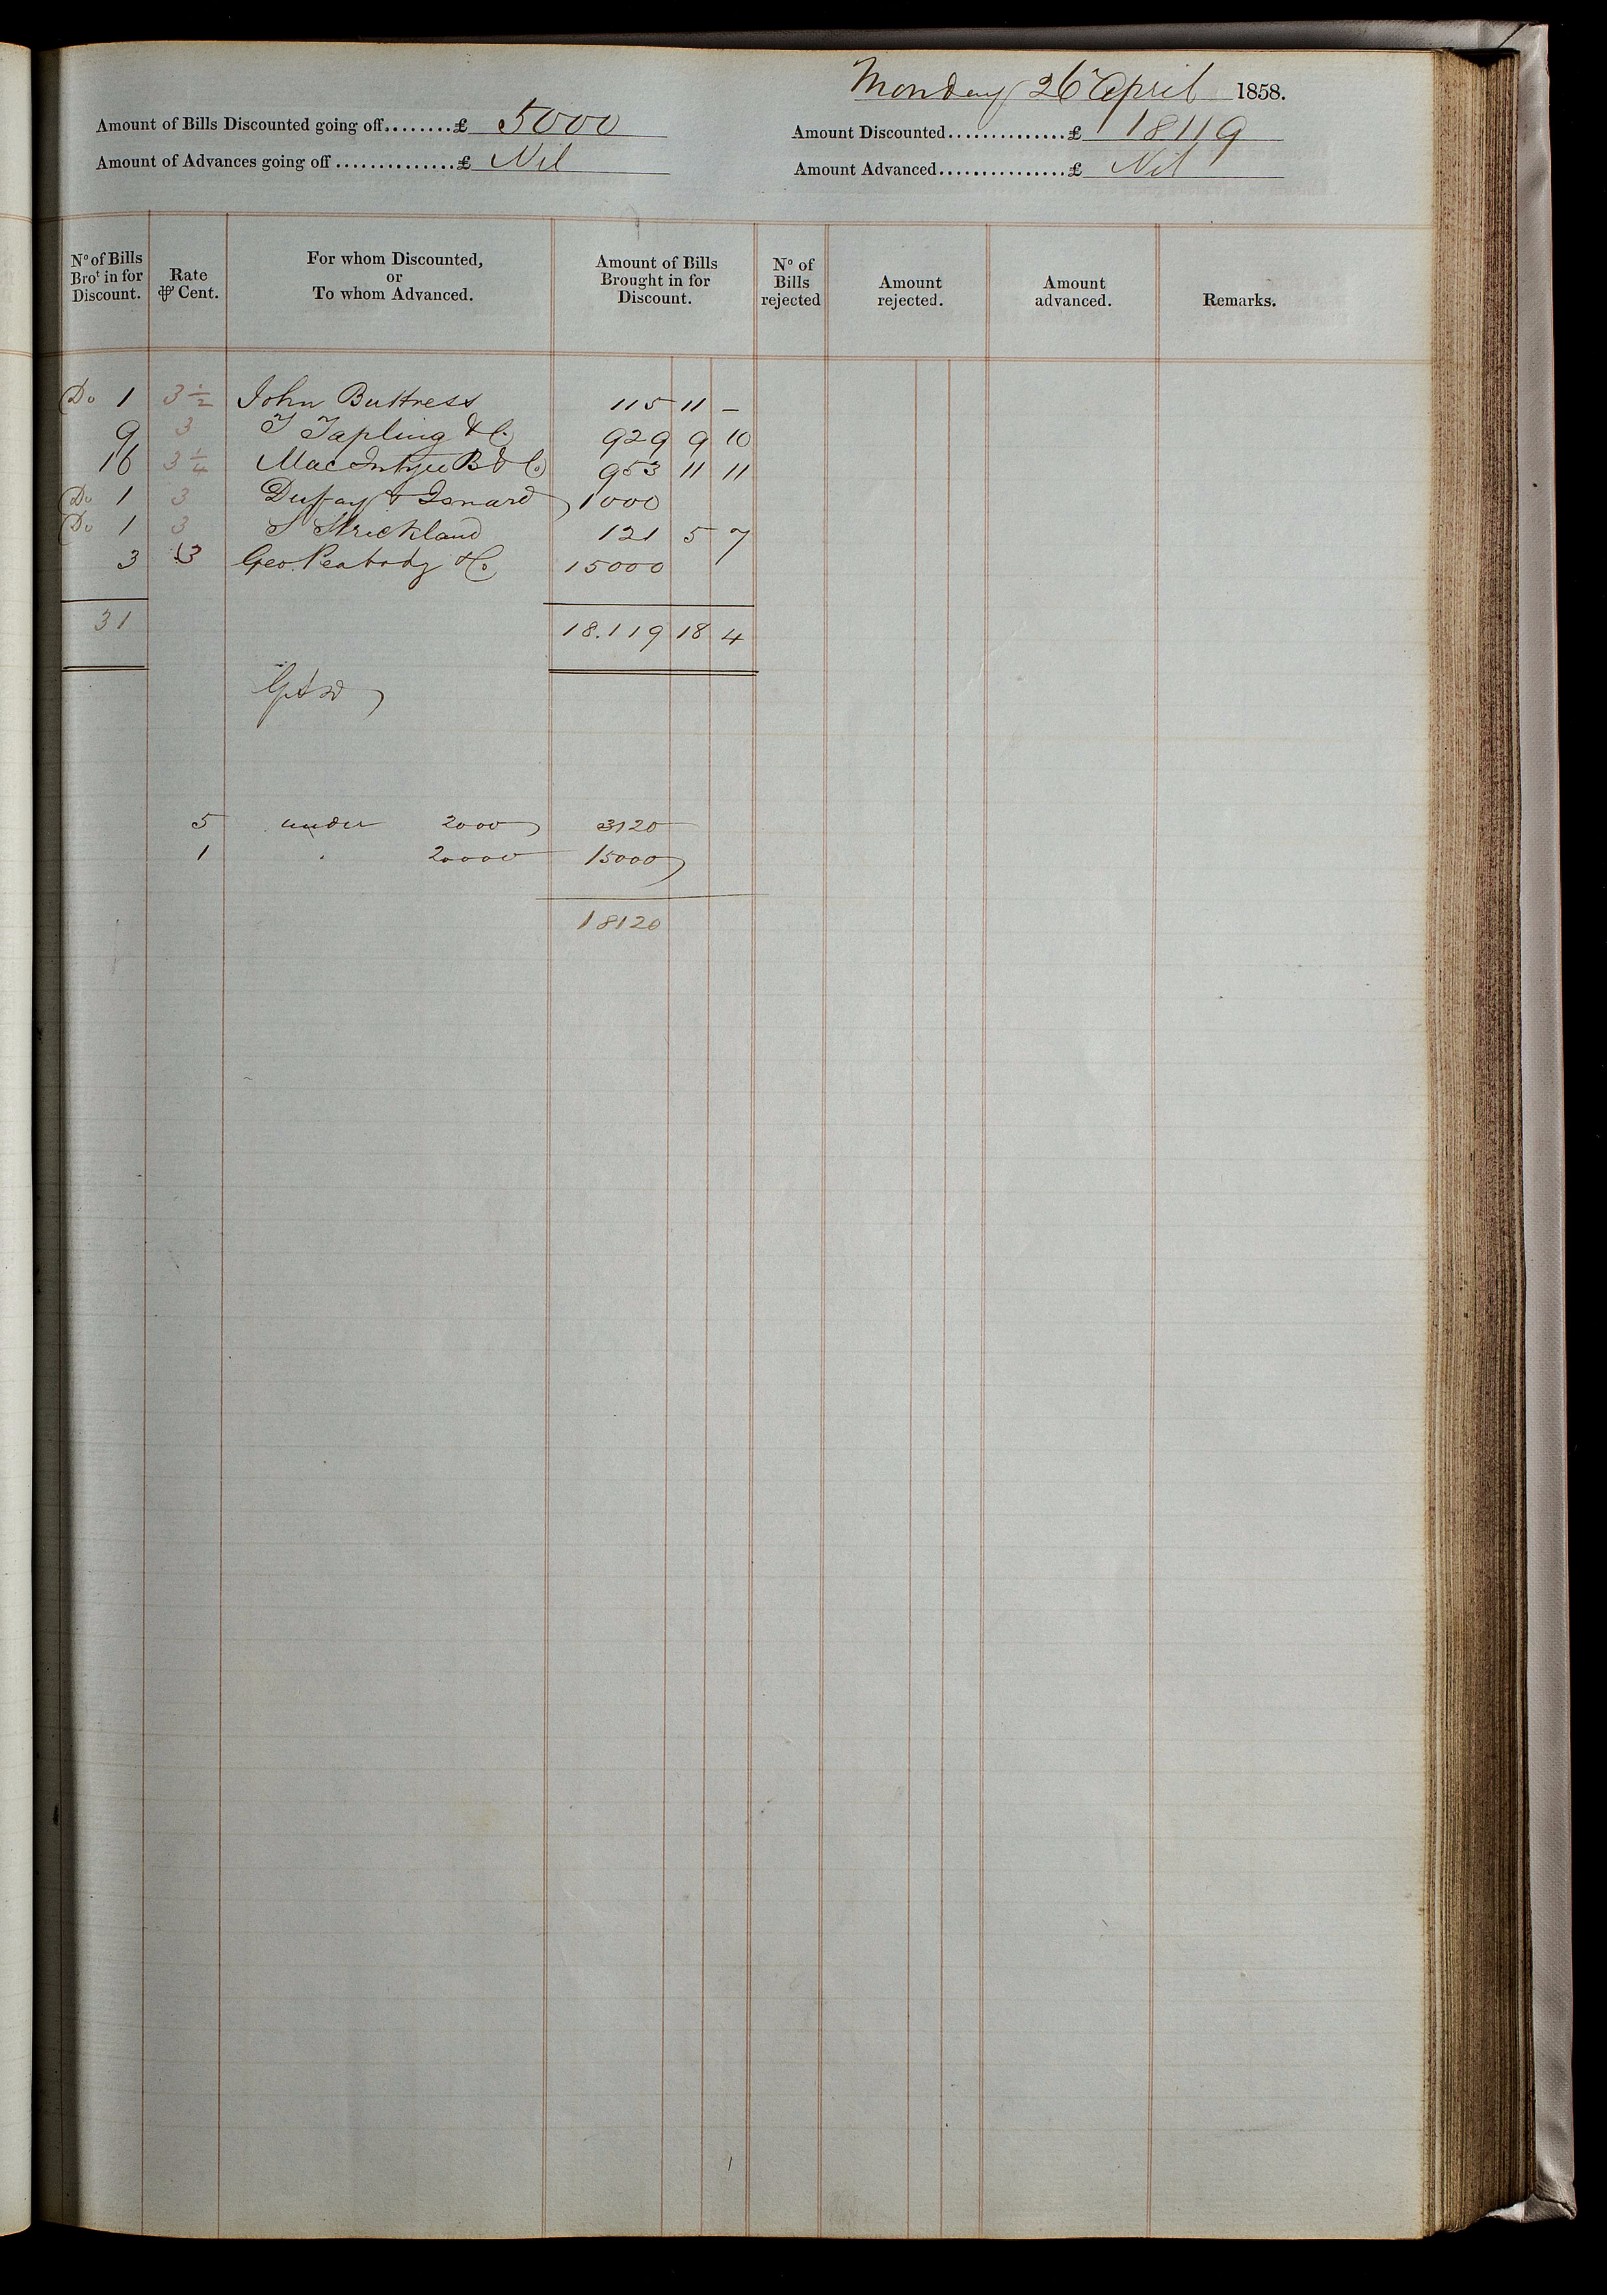 Monday 26 April 1858.
Amount of Bills Discounted going off........£ 5000
Amount Discounted..............£ 18119
Amount of Advances going off..............£ Nil
Amount Advanced...............£ Nil
Nº of Bills Broᵗ in for Discount. Rate ⅌ Cent. For whom Discounted, or To whom Advanced. Amount of Bills Brought in for Discount. Nº of Bills rejected Amount rejected. Amount advanced. Remarks.
Do 1 3½ John Buttress 115 11 –
9 3 T Tapling & Co 929 9 10
16 3¼ MacIntyre B & Co 953 11 11
Do 1 3 Dufay & Isnard 1000
Do 1 3 S Strickland 121 5 7
3 3 Geo. Peabody & Co 15000
31 18.119 18 4
5 under 2000 3120
1 " 20000 15000
18120